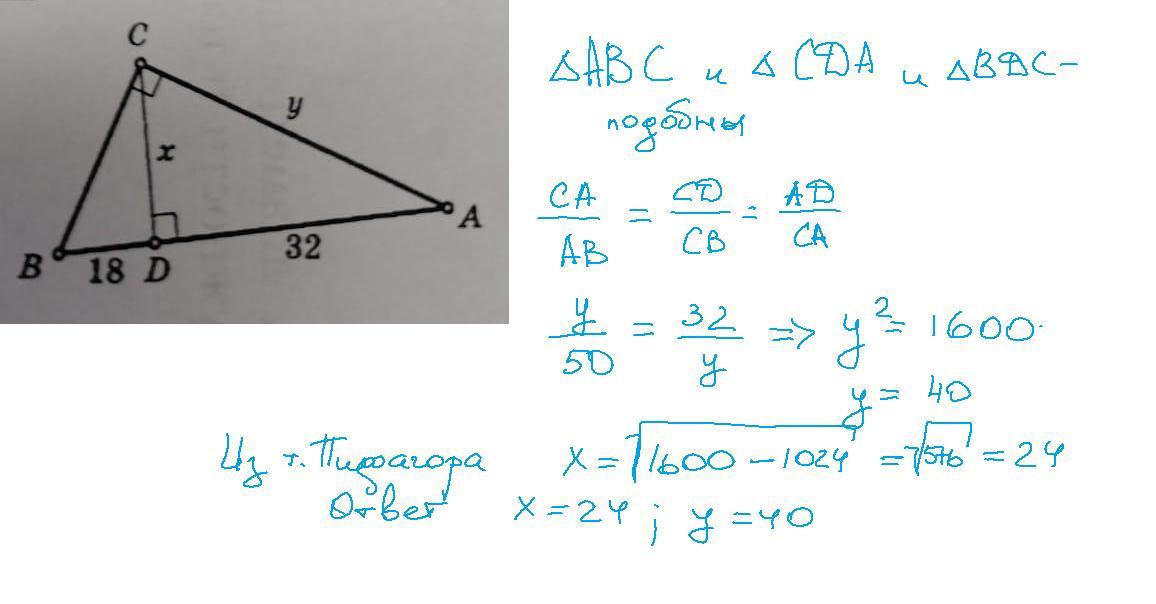 C
y
x
A
32
B 18 D
△ABC и △CDA и △BDC –
подобны
CA/AB = CD/CB = AD/CA
y/50 = 32/y => y² = 1600
y = 40
Из т. Пифагора x = √1600 – 1024 = √576 = 24
Ответ x = 24 ; y = 40